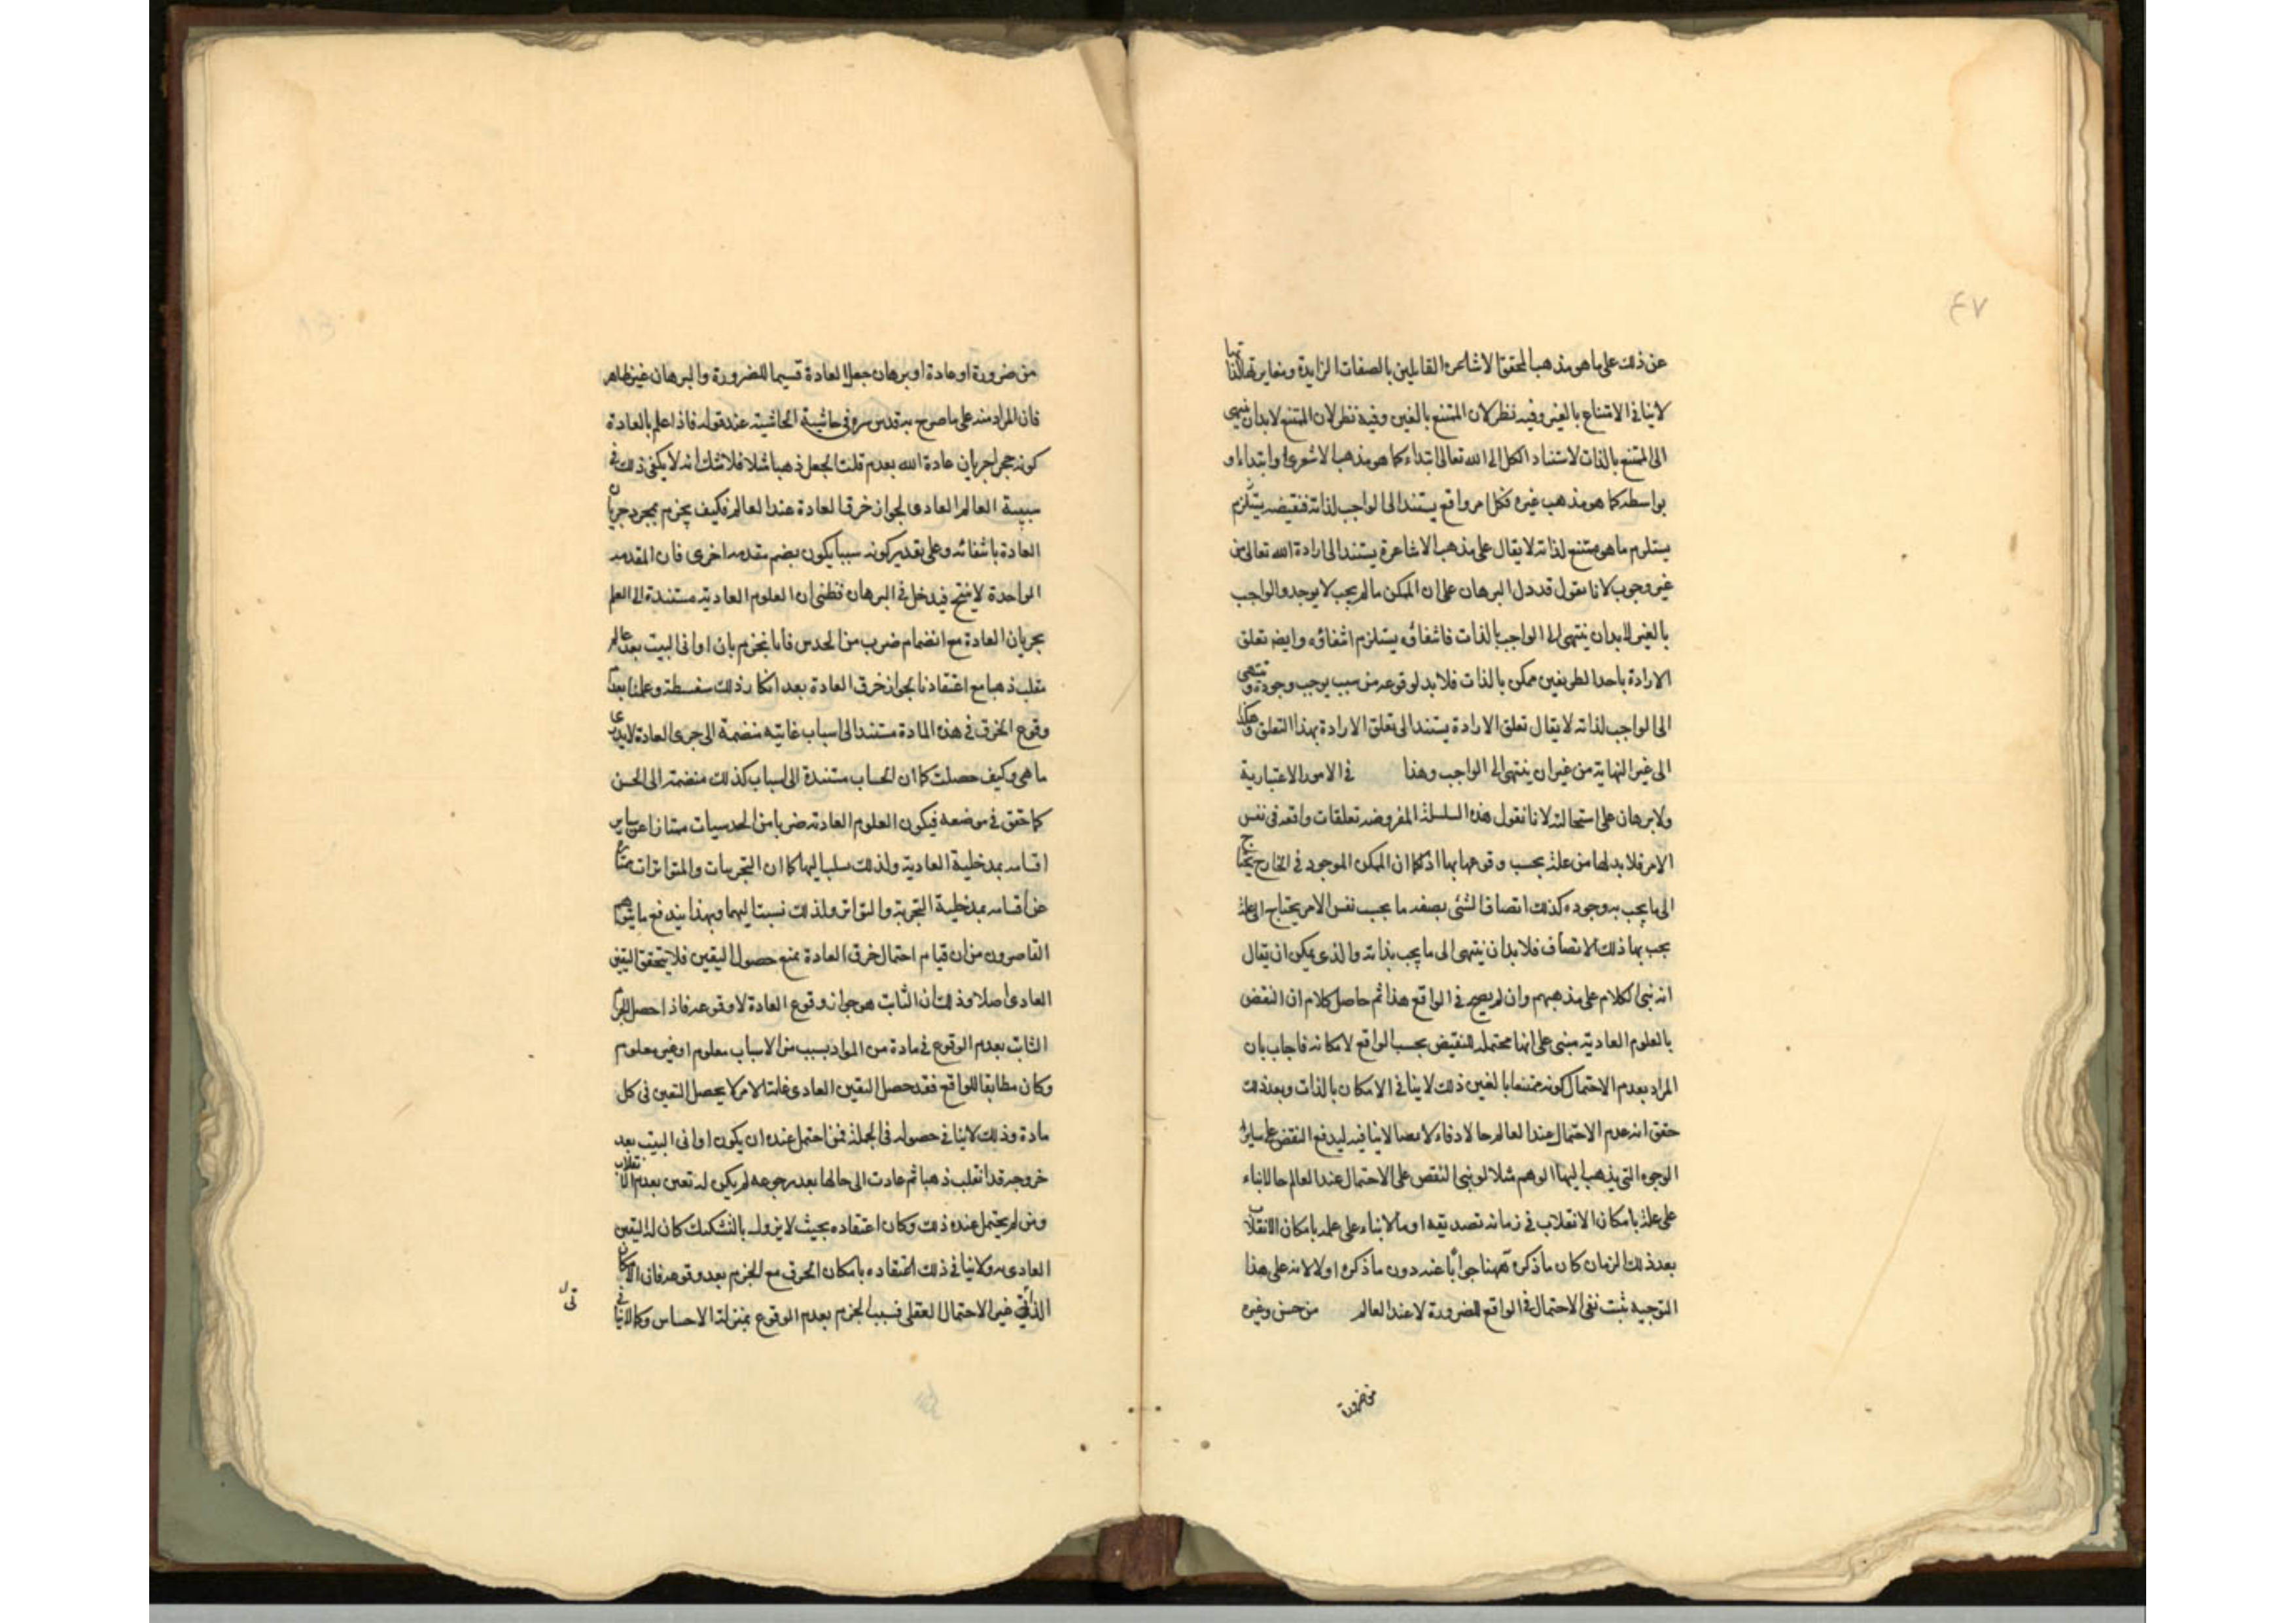 ٤٧
عن ذلك على ما هو مذهب المحققا الاشاعره القايلين بالصفات الزايدة ومغايرتها لذا تها
لاينافى الامتناع بالغير وفيه نظر لان الممتنع بالغير وفيه نظر لان الممتنع لابدان ينتهى
الى الممتنع بالذات لاستناد الكل الى الله تعالى ابتداء كما هو مذهب الاشعرى او ابتداء او
بواسطه كما هو مذهب غيره فكل امر واقع يستند الى الواجب لذاته فنقيضه يستلزم
يستلزم ما هو ممتنع لذاته لا يقال على مذهب الاشاعرة يستند الى ارادة الله تعالى من
غير وجوب لانا نقول قد دل البرهان على ان الممكن مالم يجب لا يوجد والواجب
بالغير لابدان ينتهى الى الواجب بالذات فانتفاؤه يستلزم انتفاؤه وايضا تعلق
الارادة باحد الطرفين ممكن بالذات فلابد لوقوعه من سبب يوجب وجوده وينتهى
الى الواجب لذاته لا يقال تعلق الارادة يستند الى تعلق الارادة بهذا التعلق وهكذا
الى غير النهاية من غير ان ينتهى الى الواجب وهذا فى الامور الاعتبارية
ولا برهان على استحالته لانا نقول هذه السلسلة المفروضه تعلقات واقعه فى نفس
الامر فلابد لها من علة بحسب وقوعها بها اذ كما ان الممكن الموجود فى الخارج يحتاج
الى ما يجب به وجوده كذلك اتصاف الشئ بصفه ما بحسب نفس الامر يحتاج الى علة
يجب بها ذلك الاتصاف فلابد ان ينتهى الى ما يجب بذاته والذى يمكن ان يقال
انه بنى الكلام على مذهبهم وان لم يصح فى الواقع هذا ثم حاصل كلام ان النقض
بالعلوم العادية مبنى على انها محتمله للنقيض بحسب الواقع لامكانه فاجاب بان
المراد بعدم الاحتمال كونه ممتنعا بالغير ذلك لاينافى الامكان بالذات وبعد ذلك
حقق انه عدم الاحتمال عند العالم حالا
الوجوه التى يذهب اليها الوهم مثلا لو بنى النقض على الاحتمال عند العالم حالا بناء
على علمه بامكان الانقلاب فى زمانه تصديقه او مالا بناء على علمه بامكان الانقلاب
بعد ذلك الزمان كان ما ذكره ههنا جوابا عنه دون ما ذكره اولا لانه على هذا
التوجيه يثبت نفى الاحتمال فى الواقع للضرورة لا عند العالم من حس وغيره
من ضرورة
من ضرورة او عادة او برهان جعل العادة قسيما للضرورة والبرهان غير ظاهر
فان المراد منه على ما صرح به قدس سره فى حاشية الحاشية عند قوله فاذا علم بالعادة
كون حجر جريان عادة الله بعدم قلت الجعل ذهبا مثلا فلاشك انه لا يكفى ذلك فى
سببية العالم العادى لجواز خرق العادة عند العالم فكيف يجزم بمجرد جريان
العادة بانتفائه وعلى تقدير كونه سببا يكون بضم مقدمه اخرى فان المقدمه
الواحدة لا ينتج فيدخل فى البرهان فظنى ان العلوم العادية مستندة الى العلم
بجريان العادة مع انضمام ضرب من الحدس فانا نجزم بان اوانى البيت بعد مالم
ينقلب ذهبا مع اعتقادنا بجواز خرق العادة بعد انكار ذلك سفسطة وعلمنا بعدم
وقوع الخرق فى هذه المادة مستند الى اسباب غائبة منضمة الى جرى العادة لا يدرى
ما هى وكيف حصلت كما ان الحساب مستندة الى اسباب كذلك منضمة الى الحس
كما حقق فى موضعه فيكون العلوم العادية ضربا من الحدسيات ممتازا عن ساير
اقسامه بمدخلية العادية ولذلك سلب اليها كما ان التجربيات والمتواترات ممتاز
عن اقسامه بمدخلية التجربة والتواتر ولذلك نسبتا اليهما وبهذا يندفع ما يتوهم
القاصرون من ان قيام احتمال خرق العادة يمنع حصول اليقين فلا يتحقق اليقين
العادى اصلا وذلك ان الثابت هو جواز وقوع العادة لا وقوعه فاذا حصل الجزم
الثابت بعدم الوقوع فى مادة من المواد بسبب من الاسباب معلوم او غير معلوم
وكان مطابقا للواقع فقد حصل اليقين العادى غاية الامر لا يحصل اليقين فى كل
مادة وذلك لاينافى حصوله فى الجملة فمن احتمل عنده ان يكون اوانى البيت بعد
خروجه قد انقلب ذهبا ثم عادت الى حالها بعد رجوعه لم يكن له تعين بعدم الانقلاب
ومن لم يحتمل عنده ذلك وكان اعتقاده بحيث لا يزول بالتشكيك كان له اليقين
العادى ولاينافى ذلك اعتقاده بامكان الخرق مع الجزم بعد وقوعه فان الامكان
الذاتى غير الاحتمال العقلى فسبب الجزم بعدم الوقوع بمنزلة الاحساس وكما لاينافى